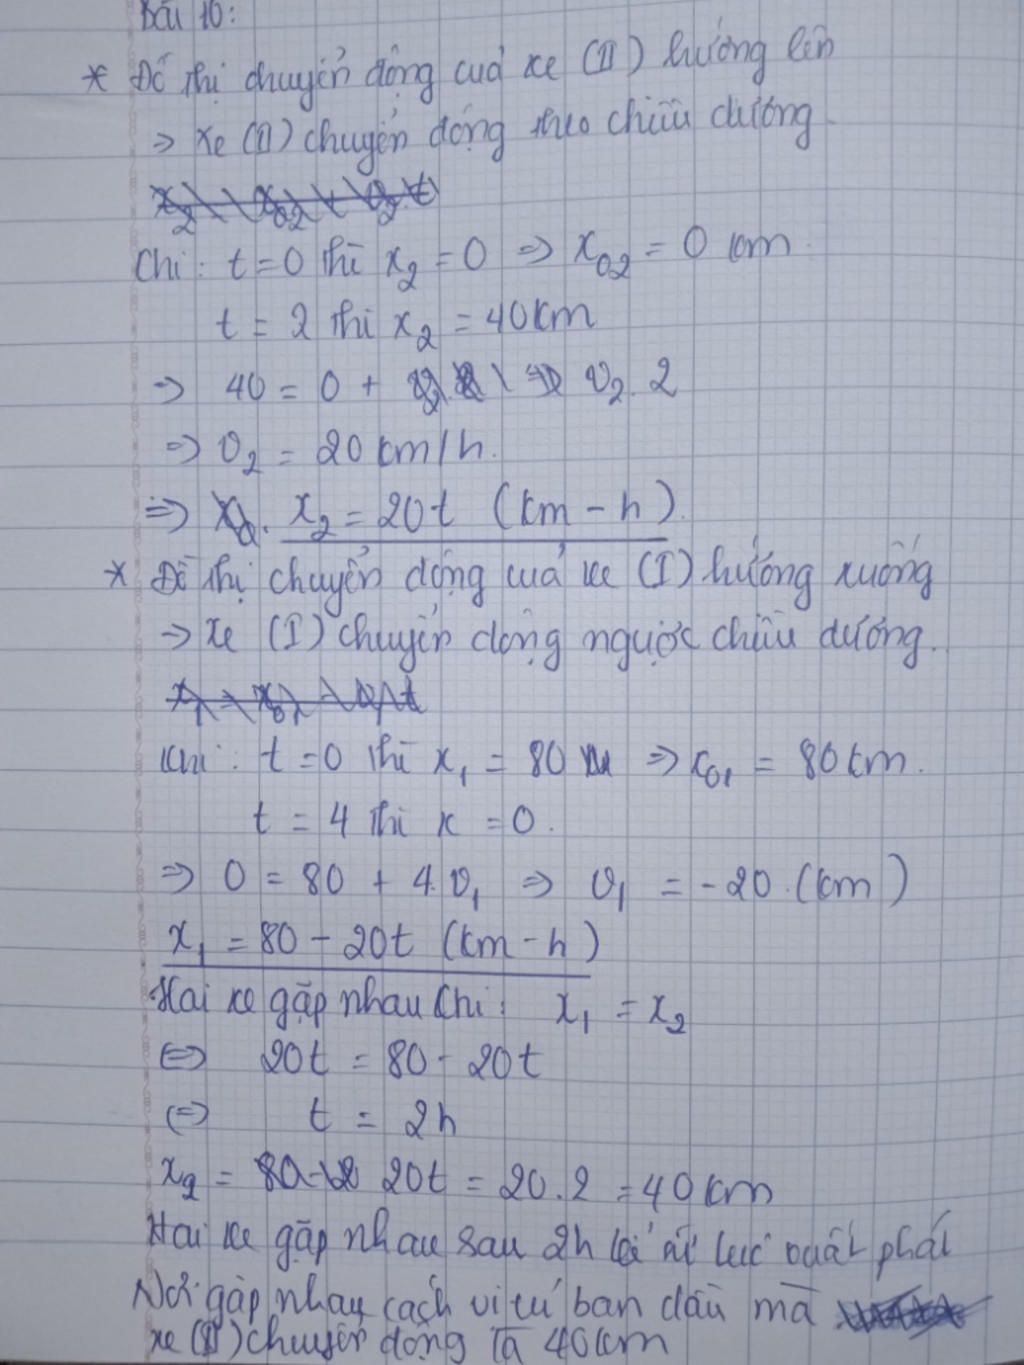 Bài 10:
* Đồ thị chuyển động của xe (II) hướng lên
⇒ Xe (II) chuyển động theo chiều dương
Chi: t = 0 thì x₂ = 0 ⇒ x₀₂ = 0 km.
t = 2 thì x₂ = 40km
⇒ 40 = 0 + v₂.2
⇒ v₂ = 20 km/h.
⇒ x₂ = 20t (km - h).
* Đồ thị chuyển động của xe (I) hướng xuống
⇒ Xe (I) chuyển động ngược chiều dương.
Khi: t = 0 thì x₁ = 80 ⇒ x₀₁ = 80 km.
t = 4 thì x = 0.
⇒ 0 = 80 + 4.v₁ ⇒ v₁ = -20 (km)
x₁ = 80 - 20t (km - h)
Hai xe gặp nhau khi: x₁ = x₂
⇔ 20t = 80 - 20t
⇔ t = 2h
x₂ = 20t = 20.2 = 40km
Hai xe gặp nhau sau 2h kể từ lúc xuất phát
Nơi gặp nhau cách vị trí ban đầu mà
xe (II) chuyển động là 40km